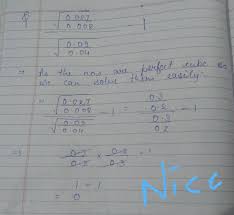 Q √0.007 / √0.008 - 1
√0.09 / √0.04
→ As the nos are perfect cube so
we can solve them easily.
∴ √0.027 / √0.008 - 1 = 0.3 / 0.2 - 1
√0.09 / √0.04 0.3 / 0.2
⇒ 0.3 / 0.2 × 0.2 / 0.3 - 1
1 - 1
= 0
Nice